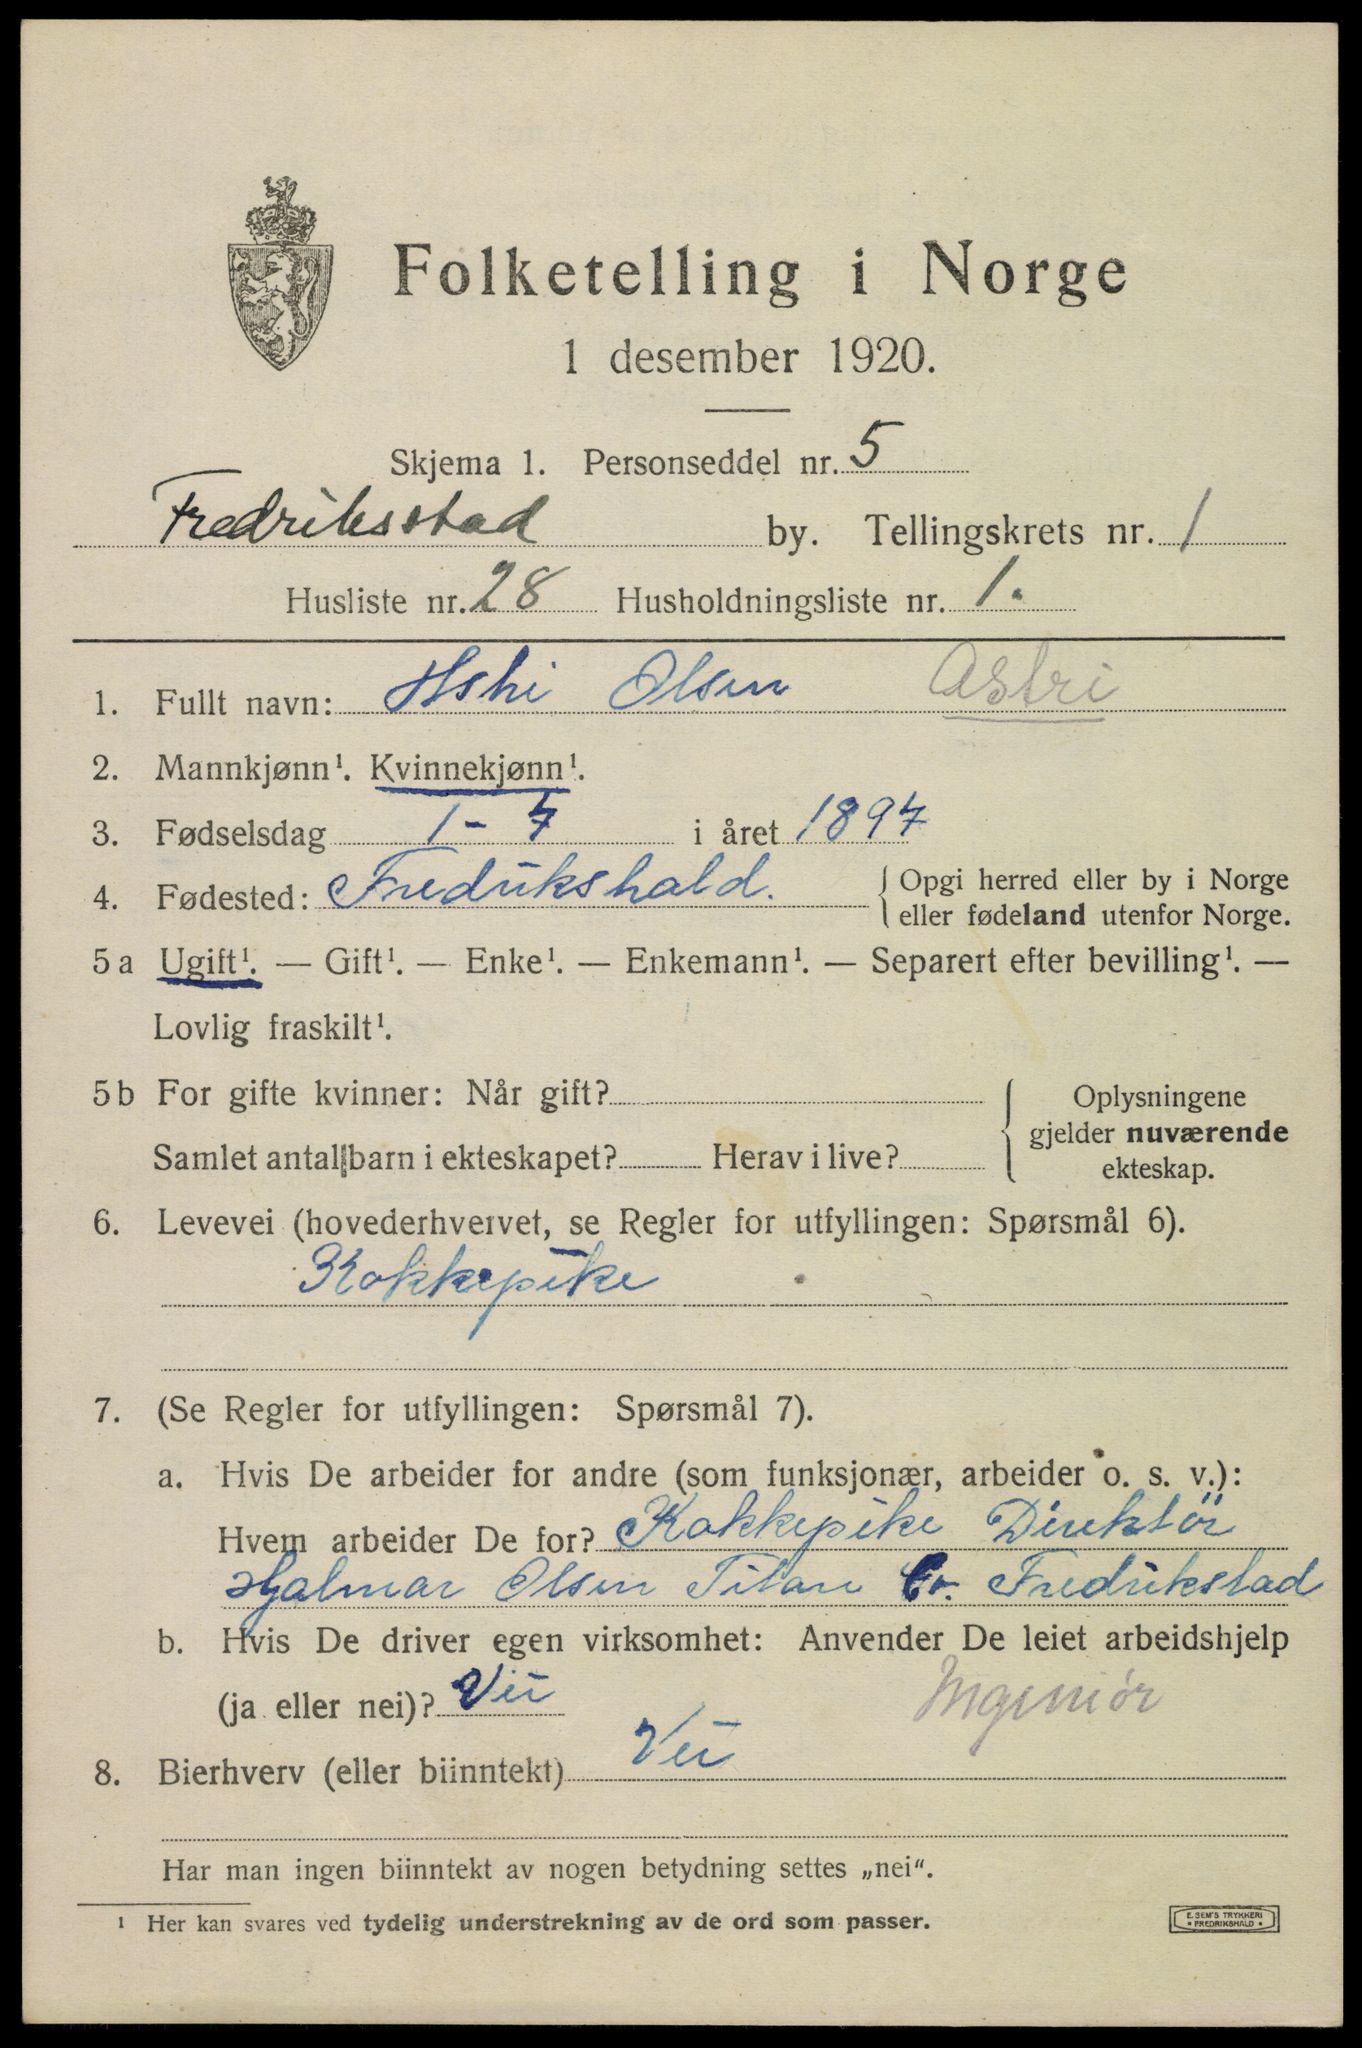 Folketelling i Norge
1 desember 1920.
Skjema 1. Personseddel nr. 5
Fredriksstad by. Tellingskrets nr. 1
Husliste nr. 28 Husholdningsliste nr. 1.
1. Fullt navn: Astri Olsen Astri
2. Mannkjønn¹. Kvinnekjønn¹.
3. Fødselsdag 1 - 7 i året 1897
4. Fødested: Fredrikshald. Opgi herred eller by i Norge
eller fødeland utenfor Norge.
5 a Ugift¹. — Gift¹. — Enke¹. — Enkemann¹. — Separert efter bevilling¹. —
Lovlig fraskilt¹.
5 b For gifte kvinner: Når gift?
Samlet antal barn i ekteskapet? Herav i live?
Oplysningene
gjelder nuværende
ekteskap.
6. Levevei (hovederhvervet, se Regler for utfyllingen: Spørsmål 6).
Kokkepike
7. (Se Regler for utfyllingen: Spørsmål 7).
a. Hvis De arbeider for andre (som funksjonær, arbeider o. s. v.):
Hvem arbeider De for? Kokkepike Direktör
Hjalmar Olsen Titan Co. Fredrikstad
b. Hvis De driver egen virksomhet: Anvender De leiet arbeidshjelp
(ja eller nei)? Nei Ingeniør
8. Bierhverv (eller biinntekt) Nei
Har man ingen biinntekt av nogen betydning settes „nei“.
¹ Her kan svares ved tydelig understrekning av de ord som passer.
E. SEM'S TRYKKERI
FREDRIKSHALD